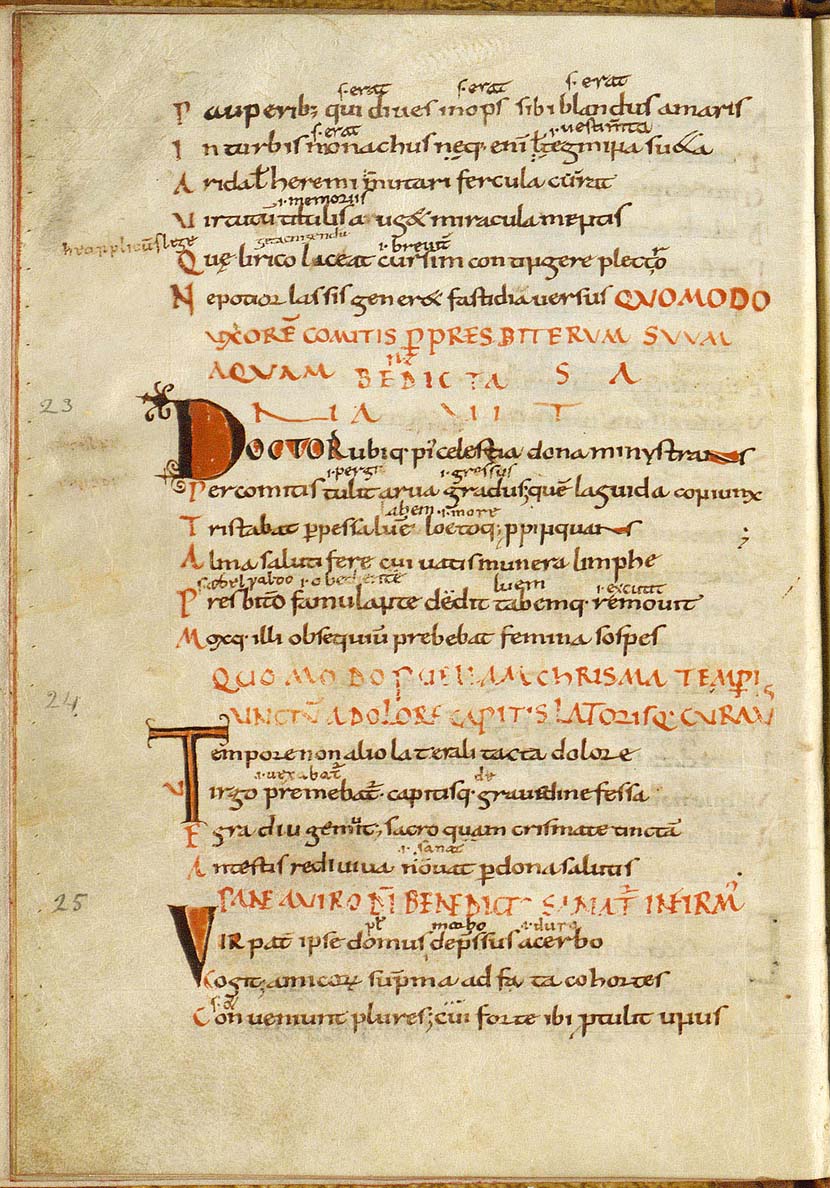 s. erat s. erat s. erat
Pauperib; qui diues inops sibi blandus amaris
s. erat .i. uestim̄ta
In turbis monachus neq. enī
Arida ł heremi p̄mutari fercula cūrat
.i. memoriis
Virtutū titulis a ug& miracula mentis
.i. breuit̄
Quę lirico liceat cursim contingere plectro
Ne potior lassis gener& fastidia uersus QVOMODO
VXORĒ COMITIS P PRESBITERVM SVVM
AQVAM BEDICTA SA
23
NAVIT
DOCTOR ubiq. pī celestia dona minystrans
.i. perge .i. gressus
Per comitis tulit arua gradus; quē languida coniunx
.i. more
Tristabat ppessa luē loetoq; ppinquans
Alma saluti fere cui uatis munera limphe
.i. obedientē luem .i. excutit
Presbitō famulante dedit tabemq. remouit
Moxq. illi obsequiū prebebat femina sospes
24
QVOMODO PVELLAM CHRISMA TEMPI
VNCTŪ A DOLORE CAPITIS LATORISQ; CVRAV
Tempore non alio laterali tacta dolore
.i. uexabat̄ de
Virgo premebat̄. capitisq. grauedine fessa
Egra diu gemit; sacro quam crismate tinctā
.i. sanat
Antestis rediuiua nōuat p dona salutis
25
PANE A VIRO DNI BENEDICT
morbo .i. duro
VIR pat̄ ipse domus depssus acerbo
Cogit; amicorꝝ sup̄ma ad fata cohortes
Conueniunt plures; cū forte ibi ptulit unus